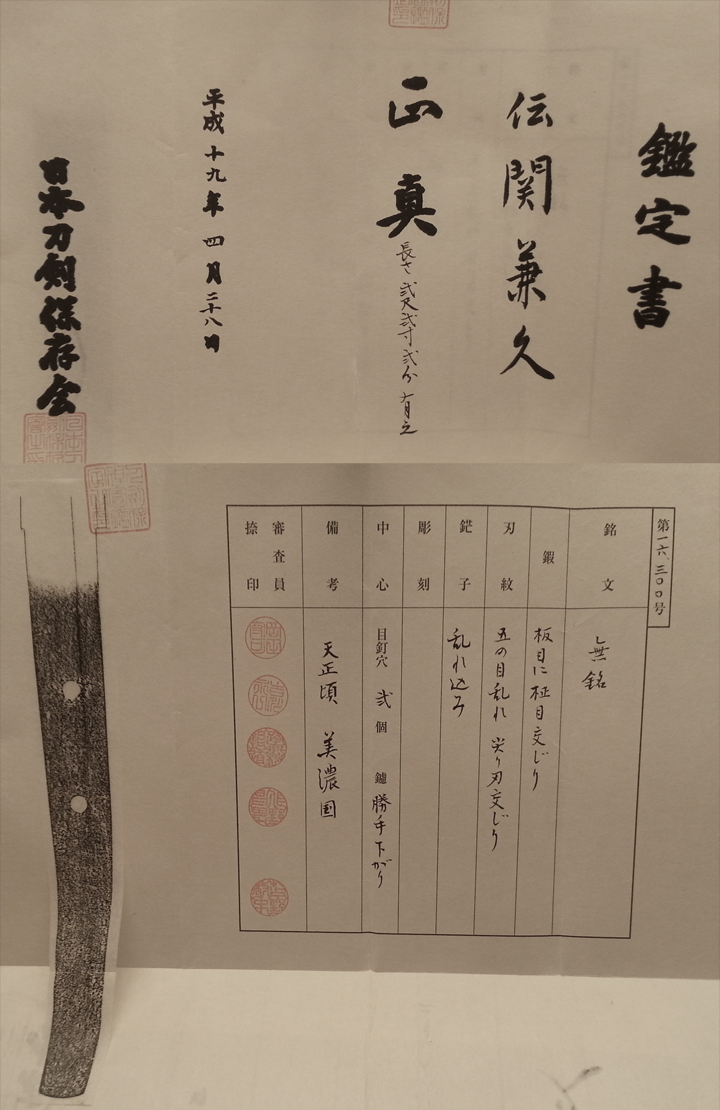 鑑定書
伝関兼久
正真
長さ弐尺弐寸弐分有之
平成十九年四月二十八日
日本刀剣保存会
第一六、三〇〇号
銘文
無銘
鍜
板目に柾目交じり
刃紋
五の目乱れ 尖り刃交じり
鋩子
乱れ込み
彫刻
中心
目釘穴 弐個 鑢 勝手下がり
備考
天正頃 美濃国
審査員
捺印